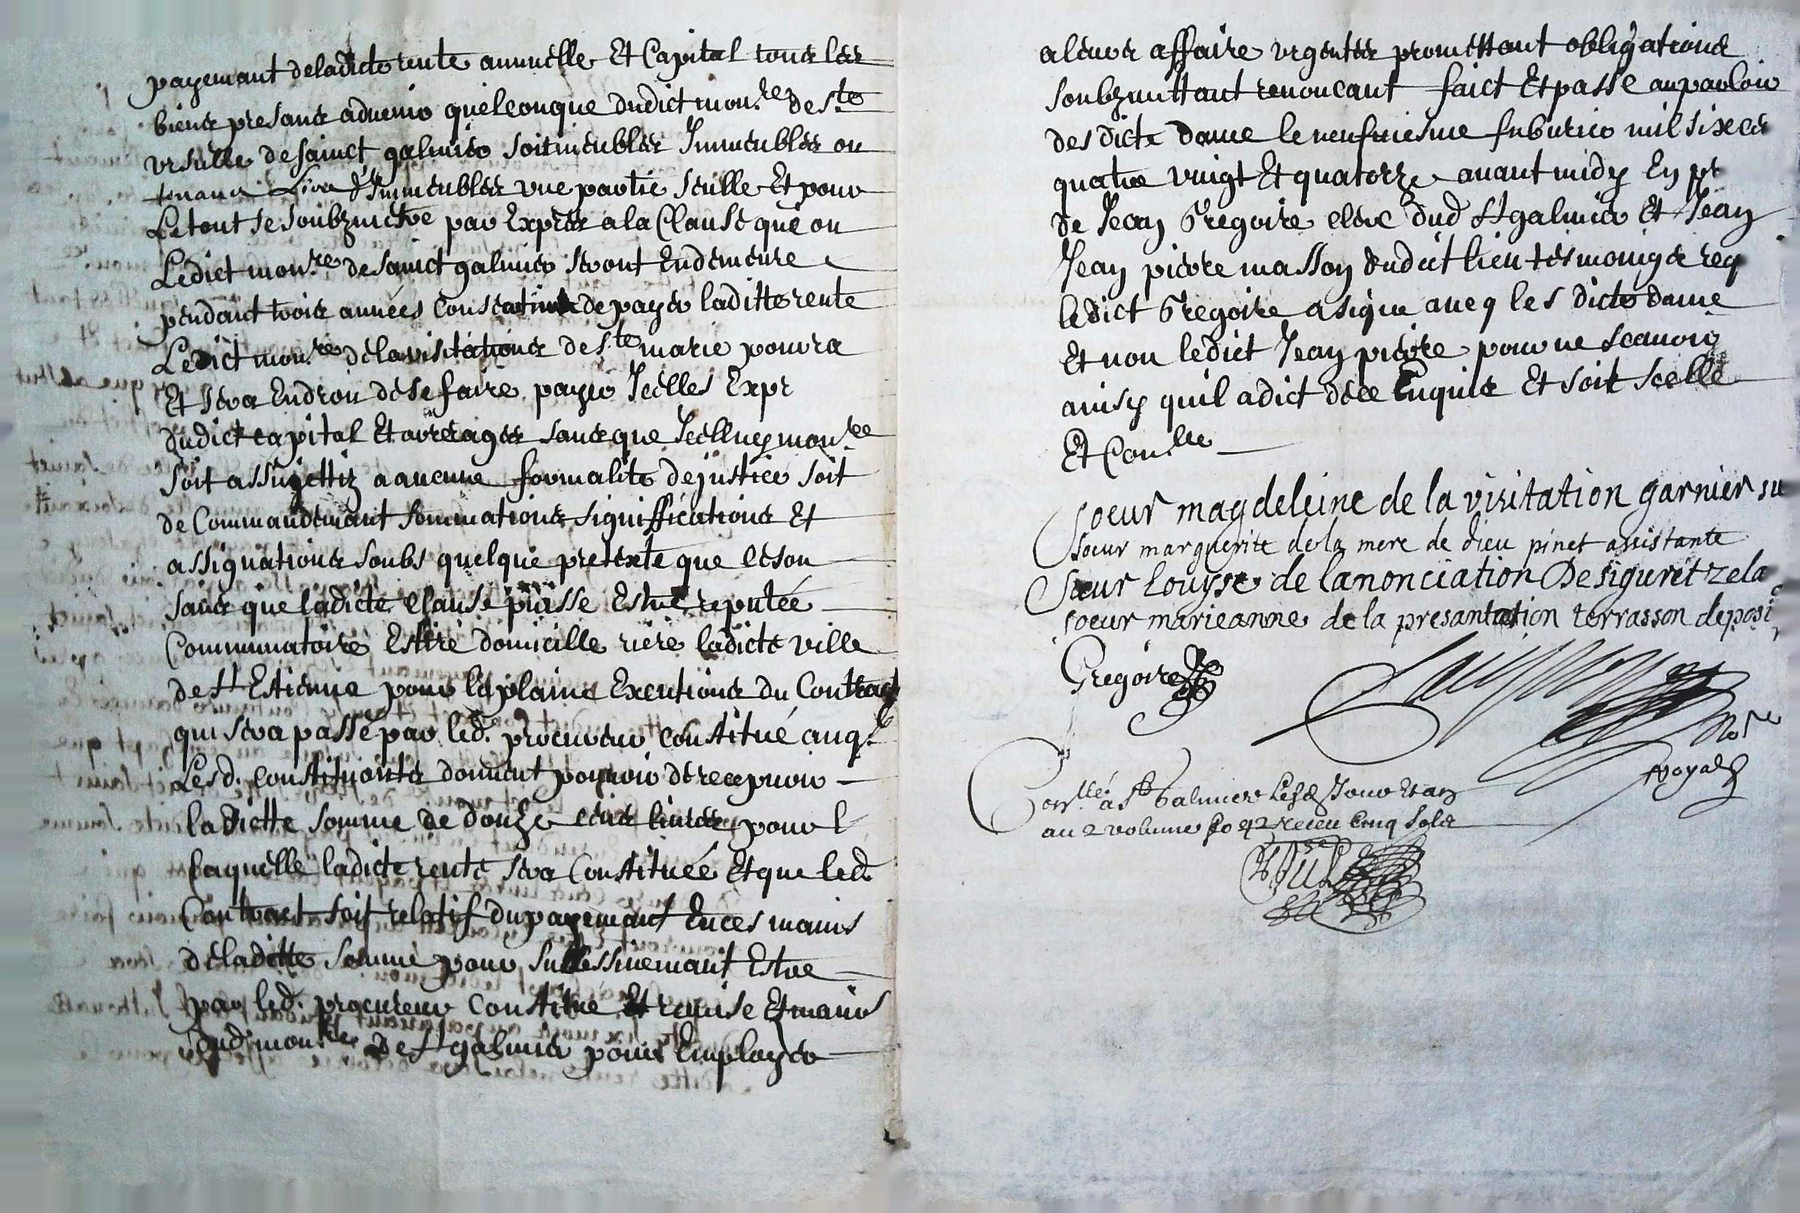 payemant deladicte rente annuelle Et Capital tous les
biens presans advenir quelconque dudict mon.re de S.te
ursulle de sainct galmier soit meubles Immeubles ou
Immeubles une partie seulle Et pour
Le tout se soubzmectre par Expres a la Clause que ou
Ledict mon.re de sainct galmier seront En demeure
pendant trois années Consecutives de payer laditte rente
Ledict mon.re de la visitations de S.te marie pourra
Et sera En droit de se faire payer Icelles
dudict capital Et arrerages sans que Icelluy mon.re
soit assujettis a aucune formalite de justice soit
de Commandemant sommations significations Et
assignations soubs quelque pretexte que ce son
sans que ladicte clause puisse Estre reputée
Comminatoire Eslire domicille riere ladicte ville
de S.t Estienne pour la plaine Execution du Contract
qui sera passé par led. procureur constitué auq.l
Lesd. constituantes donnent pouvoir de recepvoir
la Dictte somme de douze cens livres pour l
Laquelle ladicte rente sera Constituée Et que led.
Contract soit relatif du payemant En ces mains
de laditte somme pour successivemant Estre
par led. procureur Constitue Et remise Et mains
dud. mon.re de S.t galmier pour Employer
a leurs affaire urgentes promettant obligations
soubzmittant renoncant faict Et passé au parloir
des dicte dame le neufviesme febvrier mil six cens
quatre vingt Et quatorze avant midy En pr
de Jean Gregoire clerc dud. St galmier Et Jean
Jean pierre masson dudict lieu tesmoings req
ledict Gregoire a signé aveq les dicte dame
Et non ledict Jean pierre pour ne scavoir
ainsy quil a dict de ce Enquis Et soit scellé
Et Con.lle
soeur magdeleine de la visitation garnier su
soeur marguerite de la mere de dieu pinet assistante
Sœur Louyse de lanonciation De siguret zela
soeur marieanne de la presantation terrasson deposi
Gregoire
No.re
royal
Con.llé a St Galmier Les Jour Et an
au 2 volume fo 92 receu Cinq sols